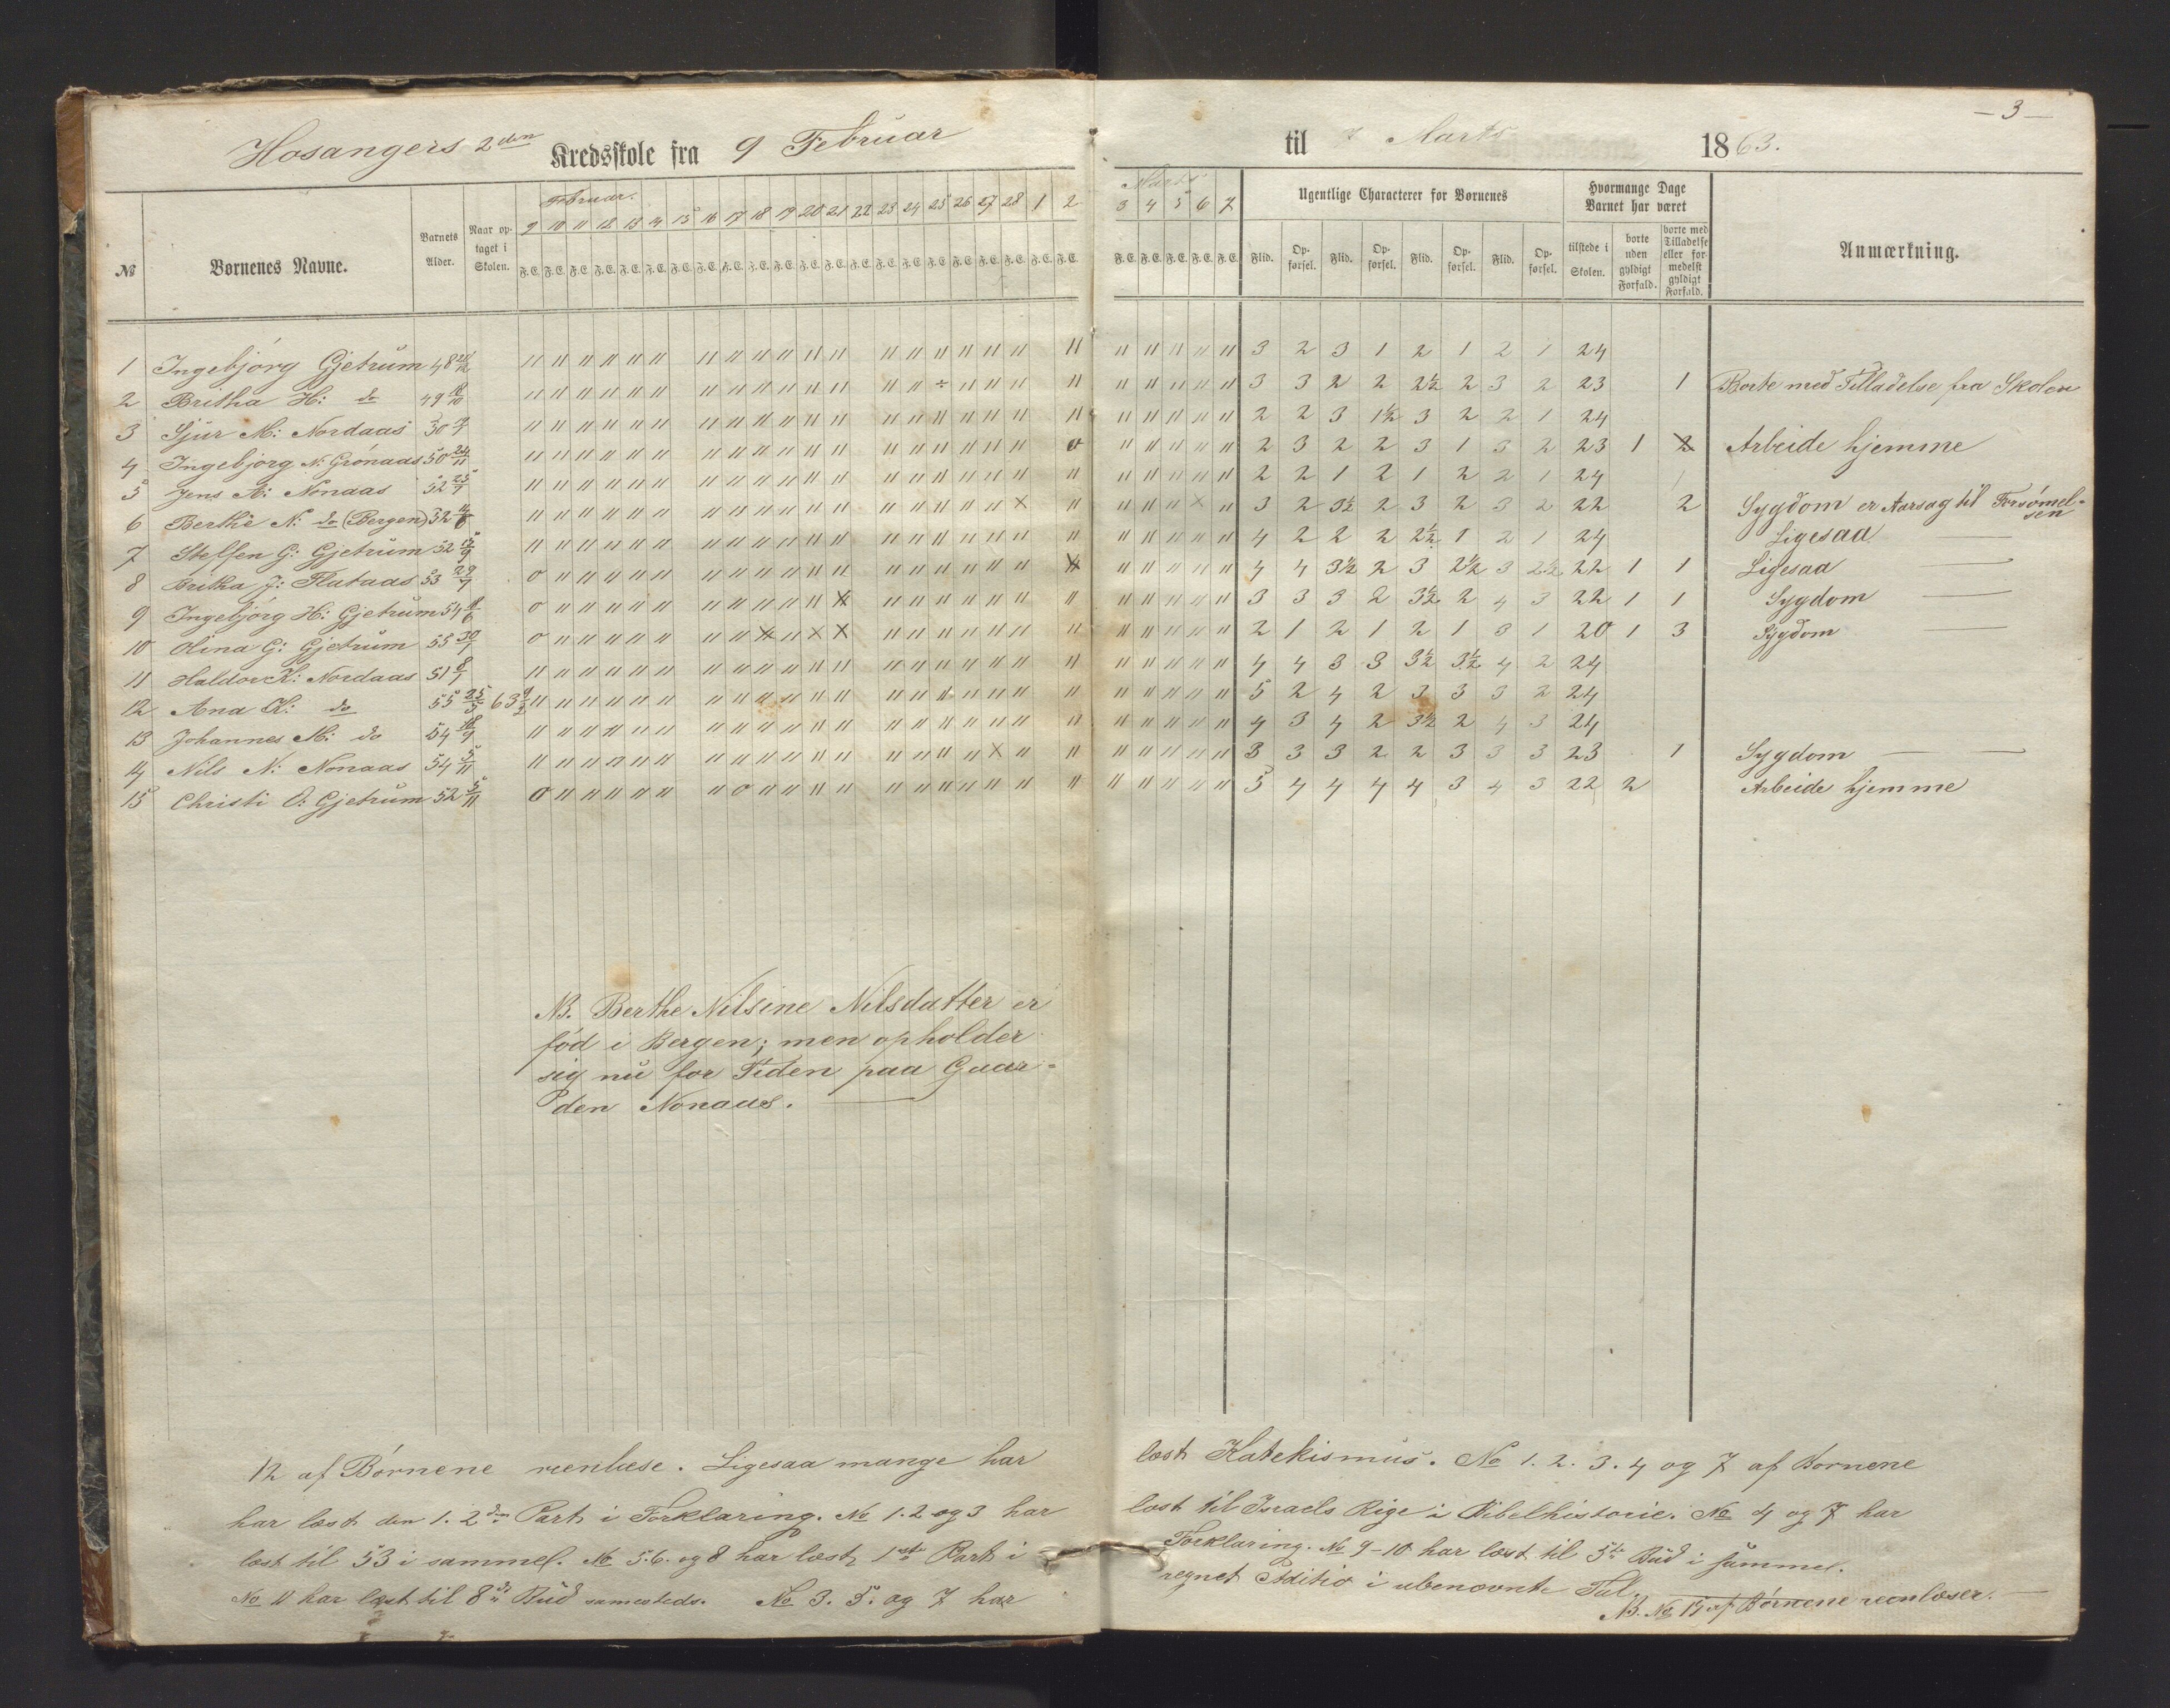 - 3 -
Hosangers 2den Kredsskole fra 9 Februar til 7 Marts 1863.
№ Børnenes Navne. Barnets Alder. Naar optaget i Skolen. Februar. 9 10 11 12 13 14 15 16 17 18 19 20 21 22 23 24 25 26 27 28 1 2 Marts 3 4 5 6 7 Ugentlige Characterer for Børnenes Hvormange Dage Barnet har været Anmærkning.
F.E. F.E. F.E. F.E. F.E. F.E. F.E. F.E. F.E. F.E. F.E. F.E. F.E. F.E. F.E. F.E. F.E. F.E. F.E. F.E. F.E. F.E. F.E. F.E. F.E. F.E. F.E. Flid. Opførsel. Flid. Opførsel. Flid. Opførsel. Flid. Opførsel. tilstede i Skolen. borte uden gyldigt Forfald. borte med Tilladelse eller formedelst gyldigt Forfald.
1 Ingebjørg Gjetrum 48 20/12 " " " " " " " " " " " " " " " " " " " " " " " " 3 2 3 1 2 1 2 1 24
2 Britha H: do 49 " " " " " " " " " " " " " " ÷ " " " " " " " " " 3 3 2 2 2½ 2 3 2 23 1 Borte med Tilladelse fra Skolen
3 Sjur M: Nordaas 50 " " " " " " " " " " " " " " " " " " " " " " " " 2 2 3 1½ 3 2 2 1 24
4 Ingebjørg N: Grönaas 50 24/11 " " " " " " " " " " " " " " " " " " 0 " " " " " 2 3 2 2 3 1 3 2 23 1 2 Arbeide hjemme
5 Jens A: Nonaas 52 25/7 " " " " " " " " " " " " " " " " " " " " " " " " 2 2 1 2 1 2 2 1 24
6 Berthe N: do (Bergen) 52 " " " " " " " " " " " " " " " " " × " " " " × " 3 2 3½ 2 3 2 3 2 22 2 Sygdom er Aarsag til Forsömel-
sen
7 Steffen G: Gjetrum 52 " " " " " " " " " " " " " " " " " " " " " " " " 4 2 2 2 2½ 1 2 1 24 Ligesaa —
8 Britha J: Flataas 53 29/7 0 " " " " " " " " " " " " " " " " " × " " " " " 4 4 3½ 2 3 2½ 3 2½ 22 1 1 Ligesaa —
9 Ingebjørg H: Gjetrum 54 0 " " " " " " " " " " × " " " " " " " " " " " " 3 3 3 2 3½ 2 4 3 22 1 1 Sygdom —
10 Olina G: Gjetrum 55 30/7 0 " " " " " " " × " × × " " " " " " " " " " " " 2 1 2 1 2 1 3 1 20 1 3 Sygdom —
11 Haldor K: Nordaas 51 8/7 " " " " " " " " " " " " " " " " " " " " " " " " 4 4 3 3 3½ 3½ 4 2 24
12 Ana K: do 55 25/5 63 9/2 " " " " " " " " " " " " " " " " " " " " " " " " 5 2 4 2 3 3 3 2 24
13 Johannes M: do 54 18/9 " " " " " " " " " " " " " " " " " " " " " " " " 4 3 4 2 3½ 2 4 3 24
14 Nils N: Nonaas 54 5/11 " " " " " " " " " " " " " " " " × " " " " " " " 3 3 3 2 2 3 3 3 23 1 Sygdom — —
15 Christi O: Gjetrum 52 5/11 0 " " " " " " 0 " " " " " " " " " " " " " " " " 5 4 4 4 4 3 4 3 22 2 Arbeide hjemme
NB. Berthe Nilsine Nilsdatter er
fód i Bergen; men opholder
sig nu for Tiden paa Gaar-
den Nonaas. —
12 af Børnene reenlæse. Ligesaa mange har
har læst den 1. 2den Part i Forklaring. No 1.2 og 3 har
læst til 53 i sammel. No 5.6. og 8 har læst 1ste Part i
No 11 har læst til 8de Bud samesteds. No 3. 5. og 7 har
læst Katekismus. No 1. 2. 3. 4 og 7 af Børnene
læst til Israels Rige i Bibelhistorie. No 4 og 7 har
Forklaring. No 9-10 har læst til 5te Bud i sammel.
regnet Aditio i ubenævnte Tal. —
NB. No 15 af Børnene reenlæser. —